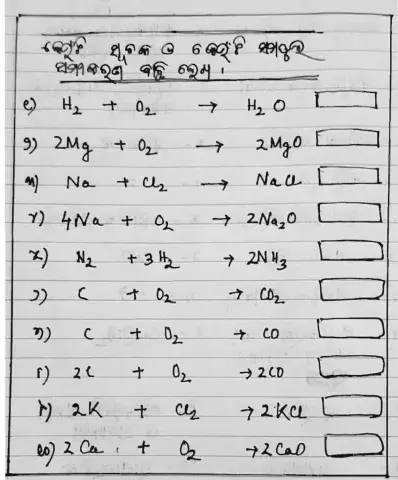 କେଉଁଟି ସୂଚକ ଓ କେଉଁଟି ସମତୁଲ
ସମୀକରଣ ବାଛି ଲେଖ ।
୧) H₂ + O₂ → H₂O
୨) 2Mg + O₂ → 2MgO
୩) Na + Cl₂ → NaCl
୪) 4Na + O₂ → 2Na₂O
୫) N₂ + 3H₂ → 2NH₃
୬) C + O₂ → CO₂
୭) C + O₂ → CO
୮) 2C + O₂ → 2CO
୯) 2K + Cl₂ → 2KCl
୧୦) 2Ca + O₂ → 2CaO